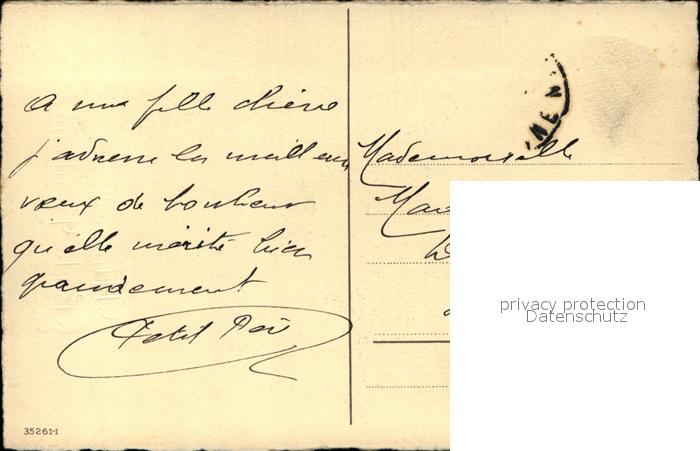 A une fille chère
j'adresse les meilleurs
vœux de bonheur
qu'elle mérite bien
grandement
Petit Pér
Mademoiselle
NEN
privacy protection
Datenschutz
35261-I